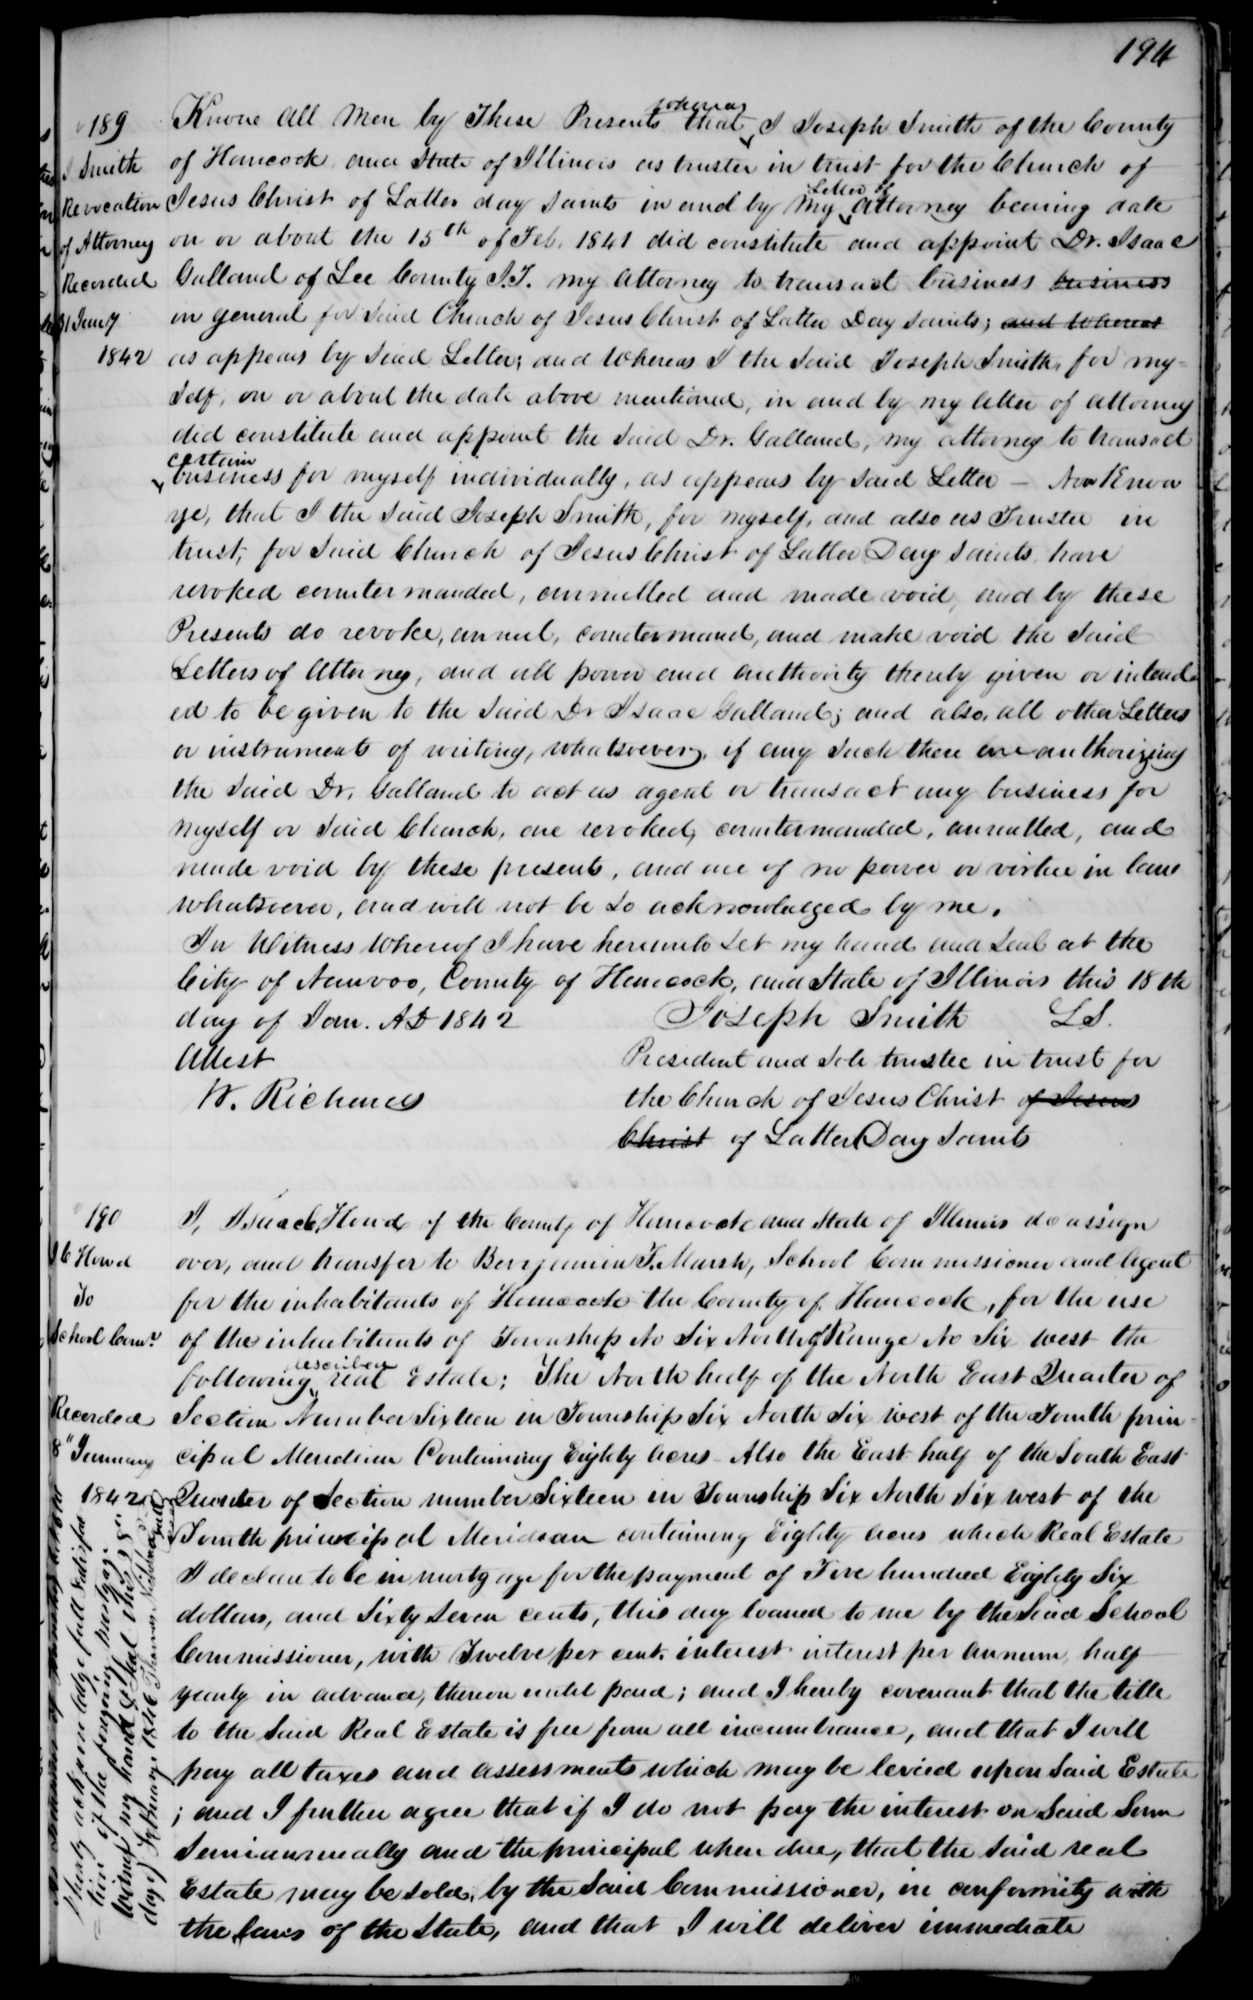 194
189
J Smith
Revocation
of Attorney
Recorded
31 Jany
1842
Know All Men by These Presents that whereas I Joseph Smith of the County
of Hancock and State of Illinois as trustee in trust for the Church of
Jesus Christ of Latter day Saints in and by my Letter of Attorney bearing date
on or about the 15th of Feb. 1841 did constitute and appoint Dr. Isaac
Galland of Lee County I.T. my Attorney to transact business business
in general for Said Church of Jesus Christ of Latter Day Saints; and Whereas
as appears by Said Letter; and Whereas I the Said Joseph Smith, for my-
Self, on or about the date above mentioned, in and by my letter of attorney
did constitute and appoint the Said Dr. Galland, my attorney to transact
certain business for myself individually, as appears by Said Letter — Now Know
ye, that I the Said Joseph Smith, for myself, and also as Trustee in
trust, for Said Church of Jesus Christ of Latter Day Saints, have
revoked countermanded, annulled and made void, and by these
Presents do revoke, annul, countermand, and make void the Said
Letters of Attorney, and all power and authority thereby given or intend
ed to be given to the Said Dr Isaac Galland; and also, all other Letters
or instruments of writing, whatsoever, if any Such there are authorizing
the Said Dr. Galland to act as agent or transact any business for
myself or Said Church, are revoked, countermanded, annulled, and
made void by these presents, and are of no power or virtue in law
whatsoever, and will not be So acknowledged by me.
In Witness Whereof I have hereunto Set my hand and Seal at the
City of Nauvoo, County of Hancock, and State of Illinois this 18th
day of Jan. AD 1842 Joseph Smith L.S.
Attest President and Sole trustee in trust for
W. Richards the Church of Jesus Christ of Jesus
Christ of Latter Day Saints
190
I C Howd
To
School Comr
Recorded
8" January
1842
I, Isaac C. Howd of the County of Hancock and State of Illinois do assign
over, and transfer to Benjamin F. Marsh, School Commissioner and Agent
for the inhabitants of Hancock the County of Hancock, for the use
of the inhabitants of Township No Six North of Range No Six west the
following described real Estate: The North half of the North East Quarter of
Section Number Sixteen in Township Six North Six west of the Fourth prin-
cipal Meridian Containing Eighty acres Also the East half of the South East
Quarter of Section number Sixteen in Township Six North Six west of the
Fourth principal Meridian containing Eighty acres which Real Estate
I declare to be in mortgage for the payment of Five hundred Eighty Six
dollars, and Sixty Seven cents, this day loaned to me by the Said School
Commissioner, with Twelve per cent. interest interest per annum half
yearly in advance, thereon until paid; and I hereby covenant that the title
to the Said Real Estate is free from all incumbrance, and that I will
pay all taxes and assessments which may be levied upon Said Estate
; and I further agree that if I do not pay the interest on Said Sum
Semiannually and the principal when due, that the Said real
Estate may be sold, by the Said Commissioner, in conformity with
the laws of the State, and that I will deliver immediate
I hereby acknowledge full Satisfac
tion of the foregoing mortgage
Witness my hand & Seal this
day of February 1846